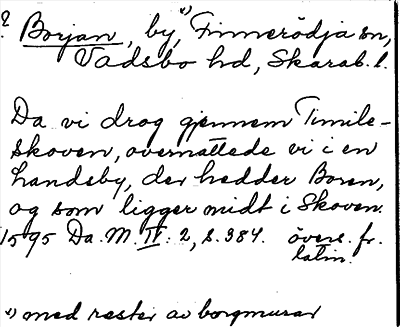 ? Borjan, by, x) Finnerödja sn,
Vadsbo hd, Skarab. l.
Da vi drog gjennem Timile-
skoven, overnattede vi i en
landsby, der hedder Boren,
og som ligger midt i Skoven.
1595 Da. M. IV: 2, s. 384. övers. fr.
latin.
x) med rester av borgmurar